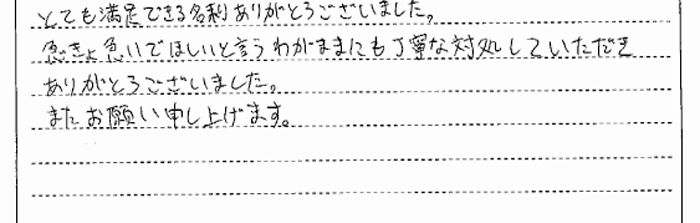 とても満足できる名刺ありがとうございました。
急きょ急いでほしいと言うわがままにも丁寧な対処していただき
ありがとうございました。
またお願い申し上げます。